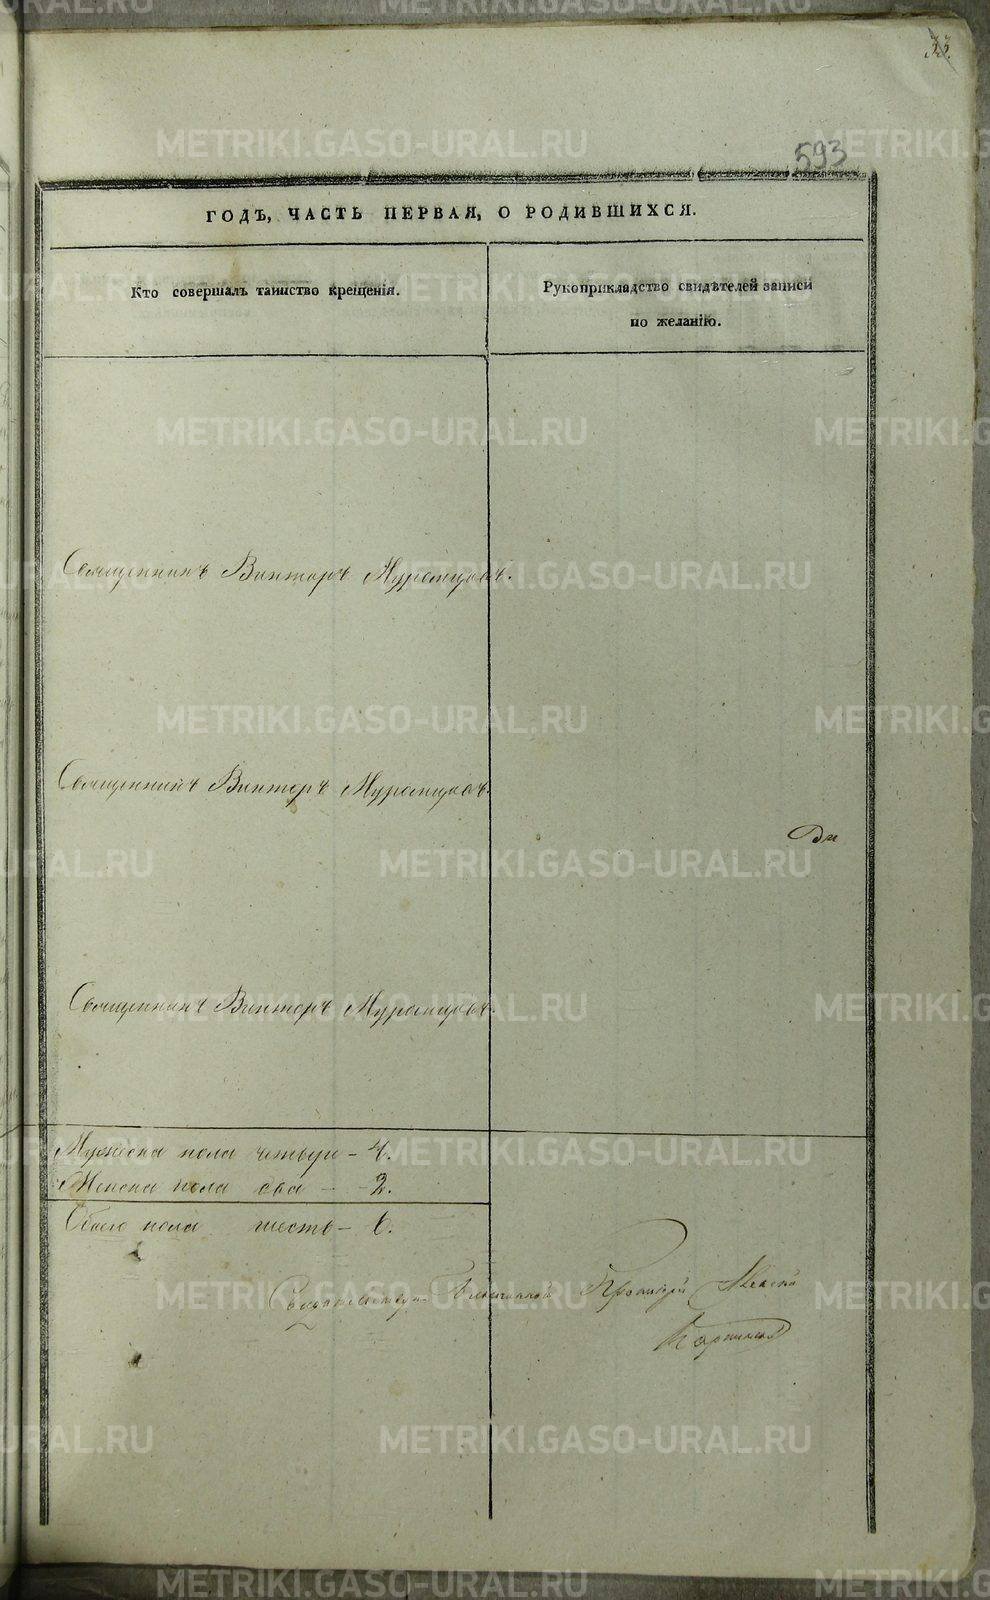 33.
593
ГОДЪ, ЧАСТЬ ПЕРВАЯ, О РОДИВШИХСЯ.
Кто совершалъ таинство крещенія.
Рукоприкладство свидѣтелей записи
по желанію.
Священникъ Викторъ Муромцовъ.
Священникъ Викторъ Муромцовъ.
Священникъ Викторъ Муромцовъ.
Мужеска пола четыре - 4.
Женска пола два - 2.
Обоего пола шесть - 6.
METRIKI.GASO-URAL.RU